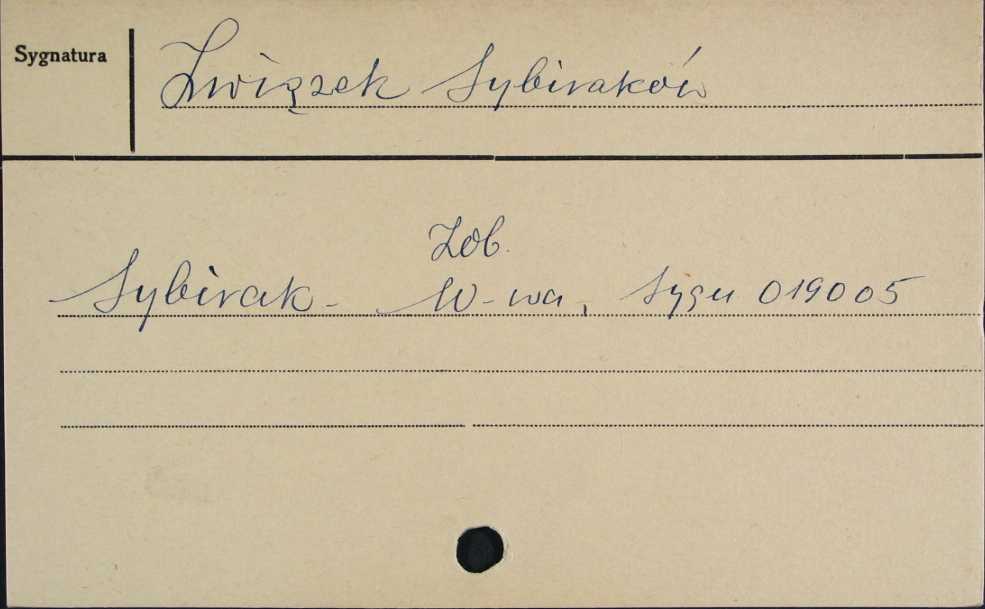 Sygnatura
Związek Sybiraków
Zob.
Sybirak - W-wa, Sygn 019005